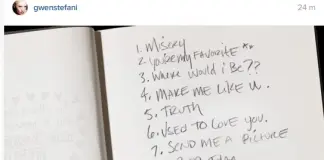 gwenstefani 24 m
1. Misery
2. YOU'RE MY FAVORITE **
3. Where Would i Be??
4. MAKE ME LIKE U.
5. TRUTH
6. USED TO LOVE YOU.
7. SEND ME A PICTURE